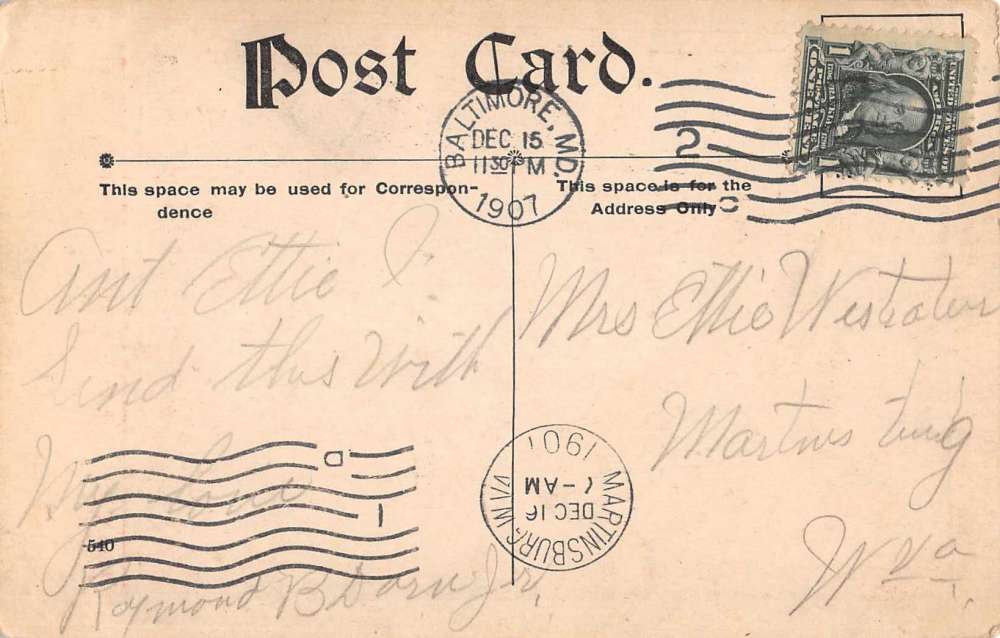 Post Card.
BALTIMORE, MD.
DEC 15
11 30 PM
1907
2
This space may be used for Correspondence
This space is for the
Address Only
Ant Ettie I
Send this With
My Love
Raymond B Dorn Jr,
Mrs Ettie
Martinsburg
W va
MARTINSBURG W.VA
DEC 16
-AM
1907
540
1